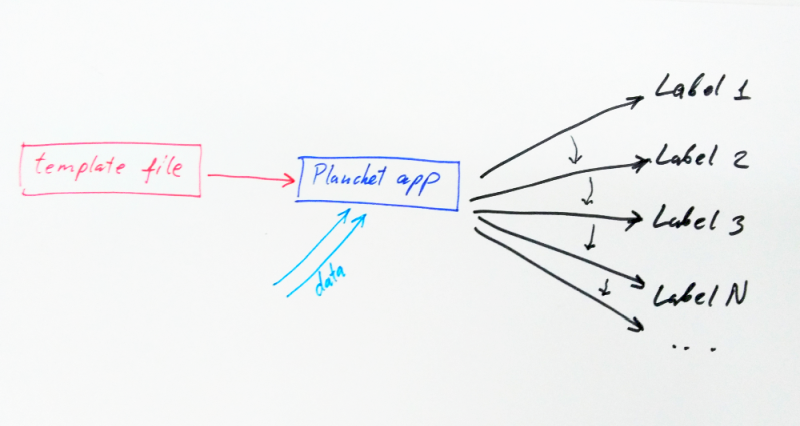 template file
Planchet app
data
Label 1
Label 2
Label 3
Label N
...